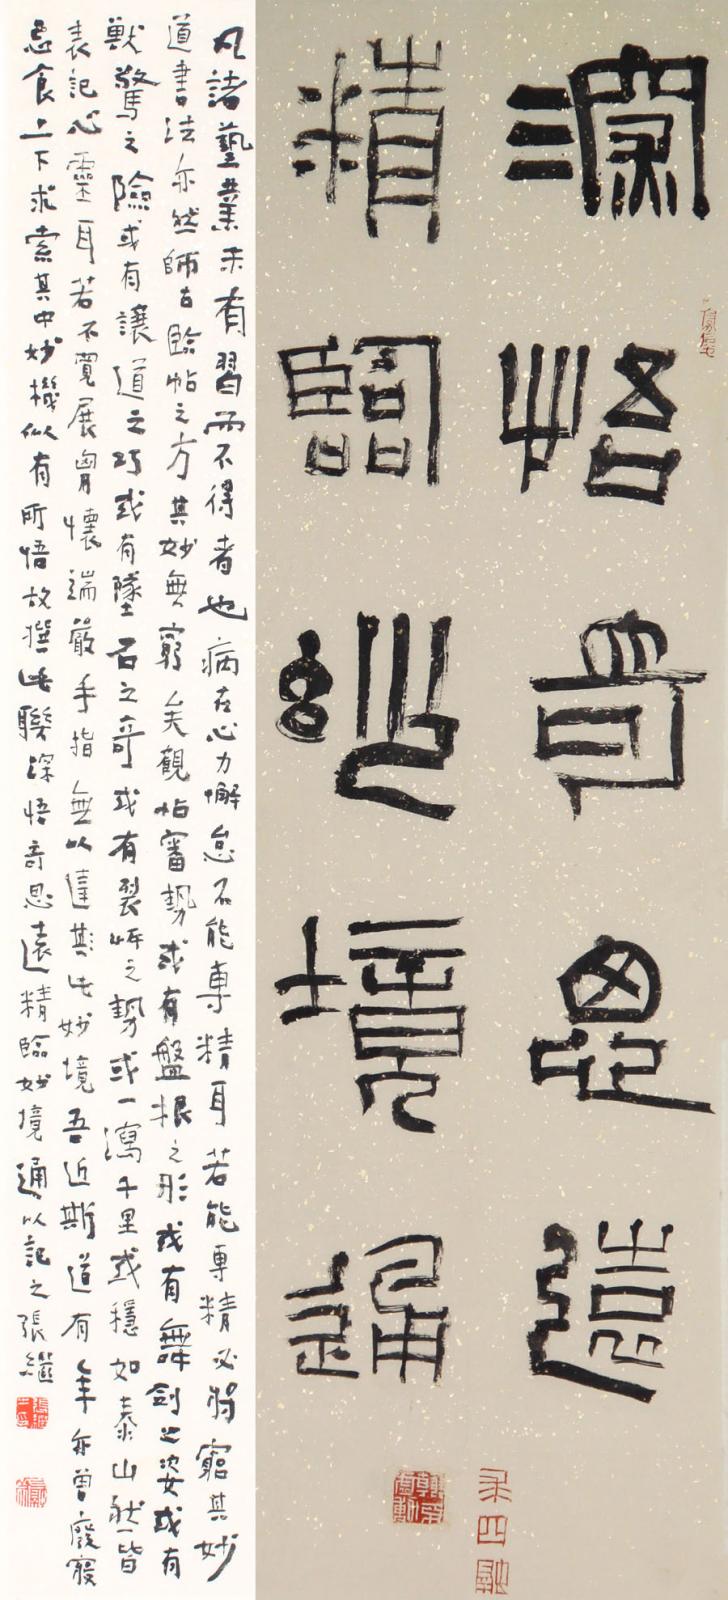 深悟奇思遠
精臨妙境通
凡諸藝業未有習而不得者也病在心力懈怠不能專精耳若能專精必將窮其妙
道書法亦然師古臨帖之方其妙無窮矣觀帖審勢或有盤根之形或有舞劍之姿或有
獸驚之險或有讓道之巧或有墜石之奇或有裂岸之勢或一瀉千里或穩如泰山然皆
表記心靈耳若不寬展胸懷端嚴手指無以達斯妙境吾近斯道有年亦曾廢寢
忘食上下求索其中妙機似有所悟故撰此聯深悟奇思遠精臨妙境通以記之張繼